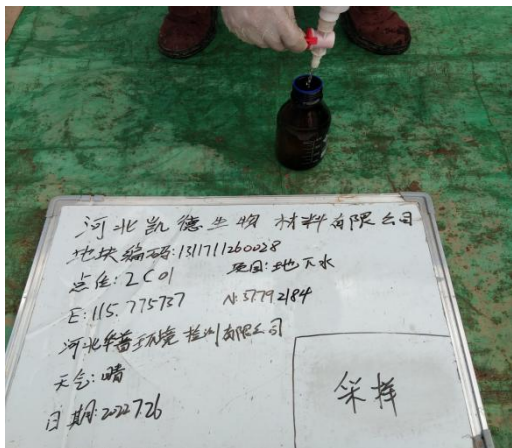 河北凯德生物材料有限公司
地块编码:1311711260028
点位:2C01 项目:地下水
E:115.775737 N:37.792184
河北华普环境检测有限公司
天气:晴
日期:2022.7.26
采样